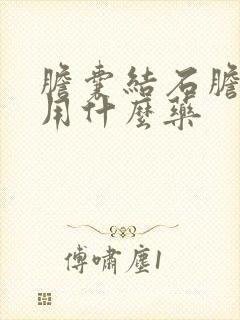 膽囊結石膽
用什麼藥
傅嘯塵1